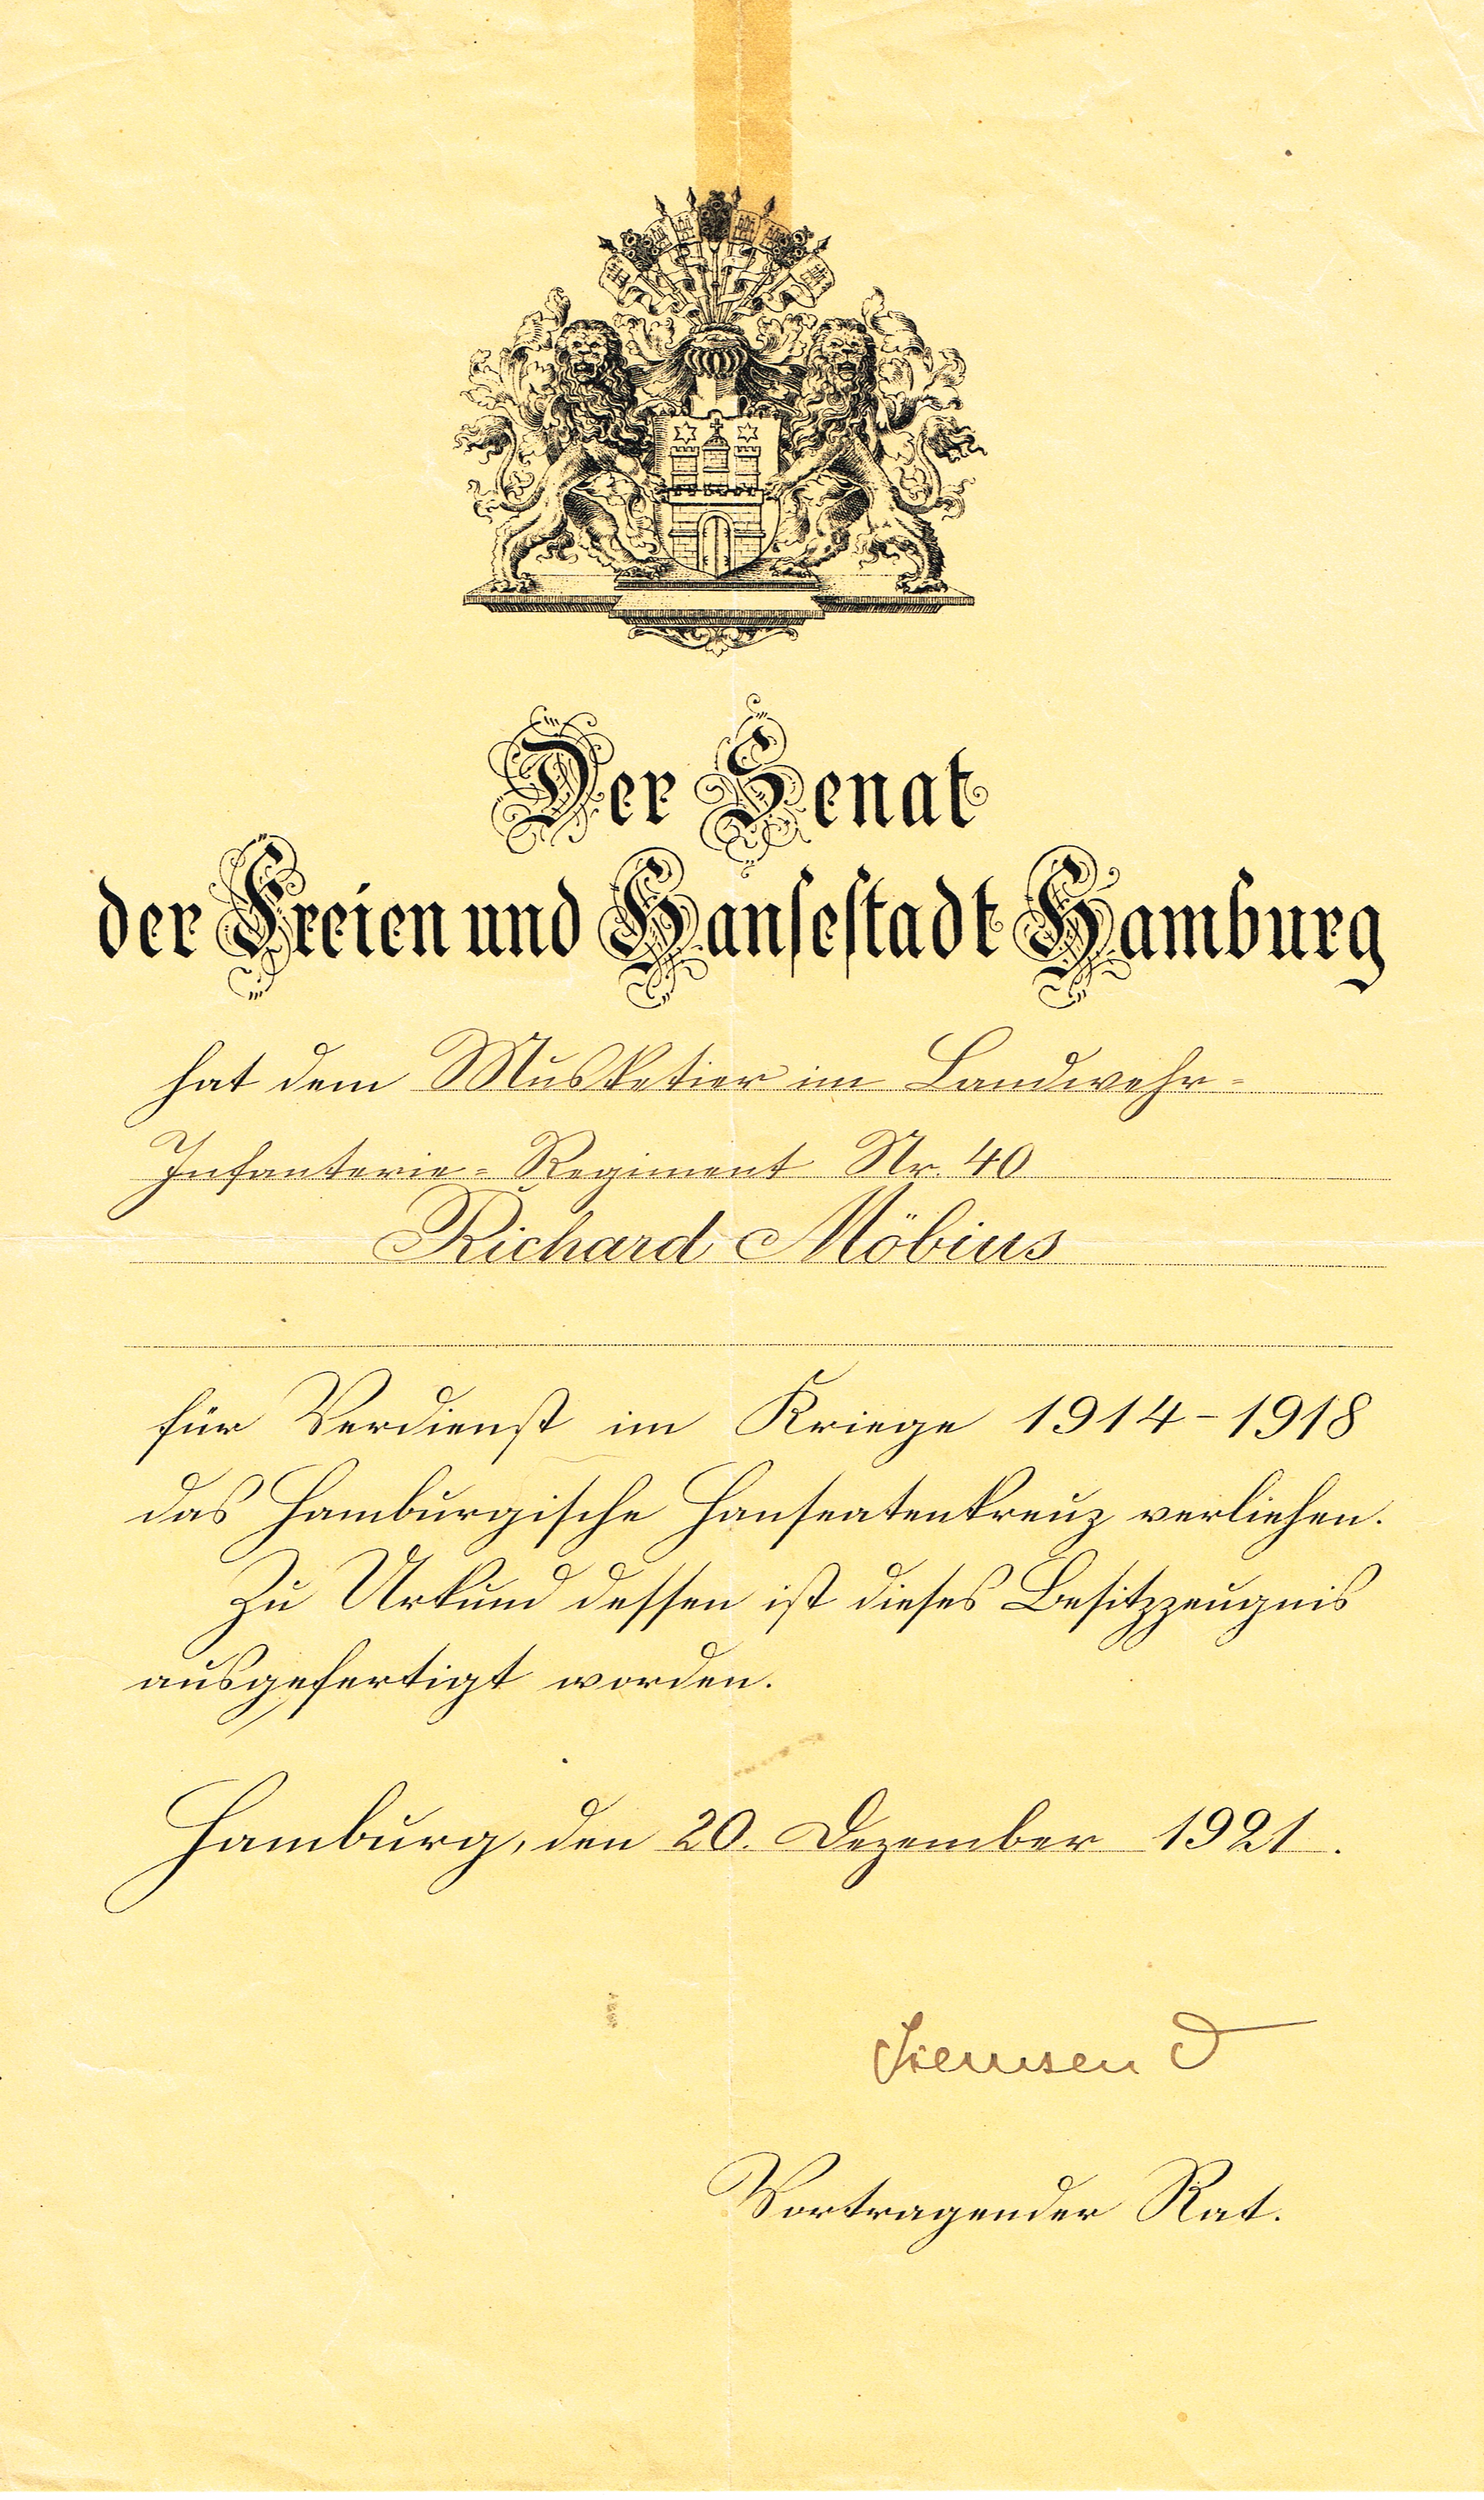 Der Senat
der Freien und Hansestadt Hamburg
hat dem Musketier im Landwehr-
Infanterie-Regiment Nr. 40
Richard Möbius
für Verdienst im Kriege 1914-1918
das Hamburgische Hanseatenkreuz verliehen.
Zu Urkund dessen ist dieses Besitzzeugnis
ausgefertigt worden.
Hamburg, den 20. Dezember 1921.
Siemsen D
Vortragender Rat.